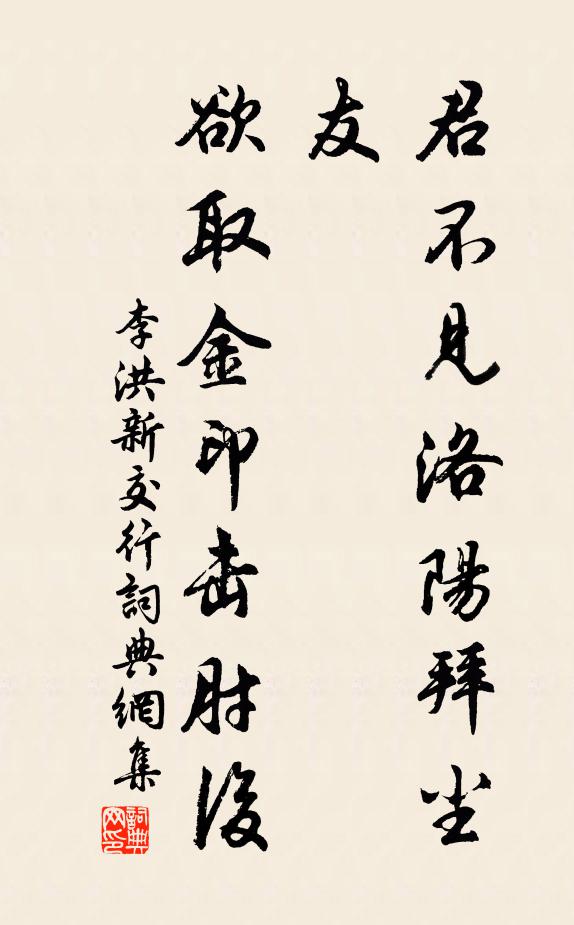 君不見洛陽拜尘
友
欲取金印击肘後
李洪新交行詞典網集
詞典
网印